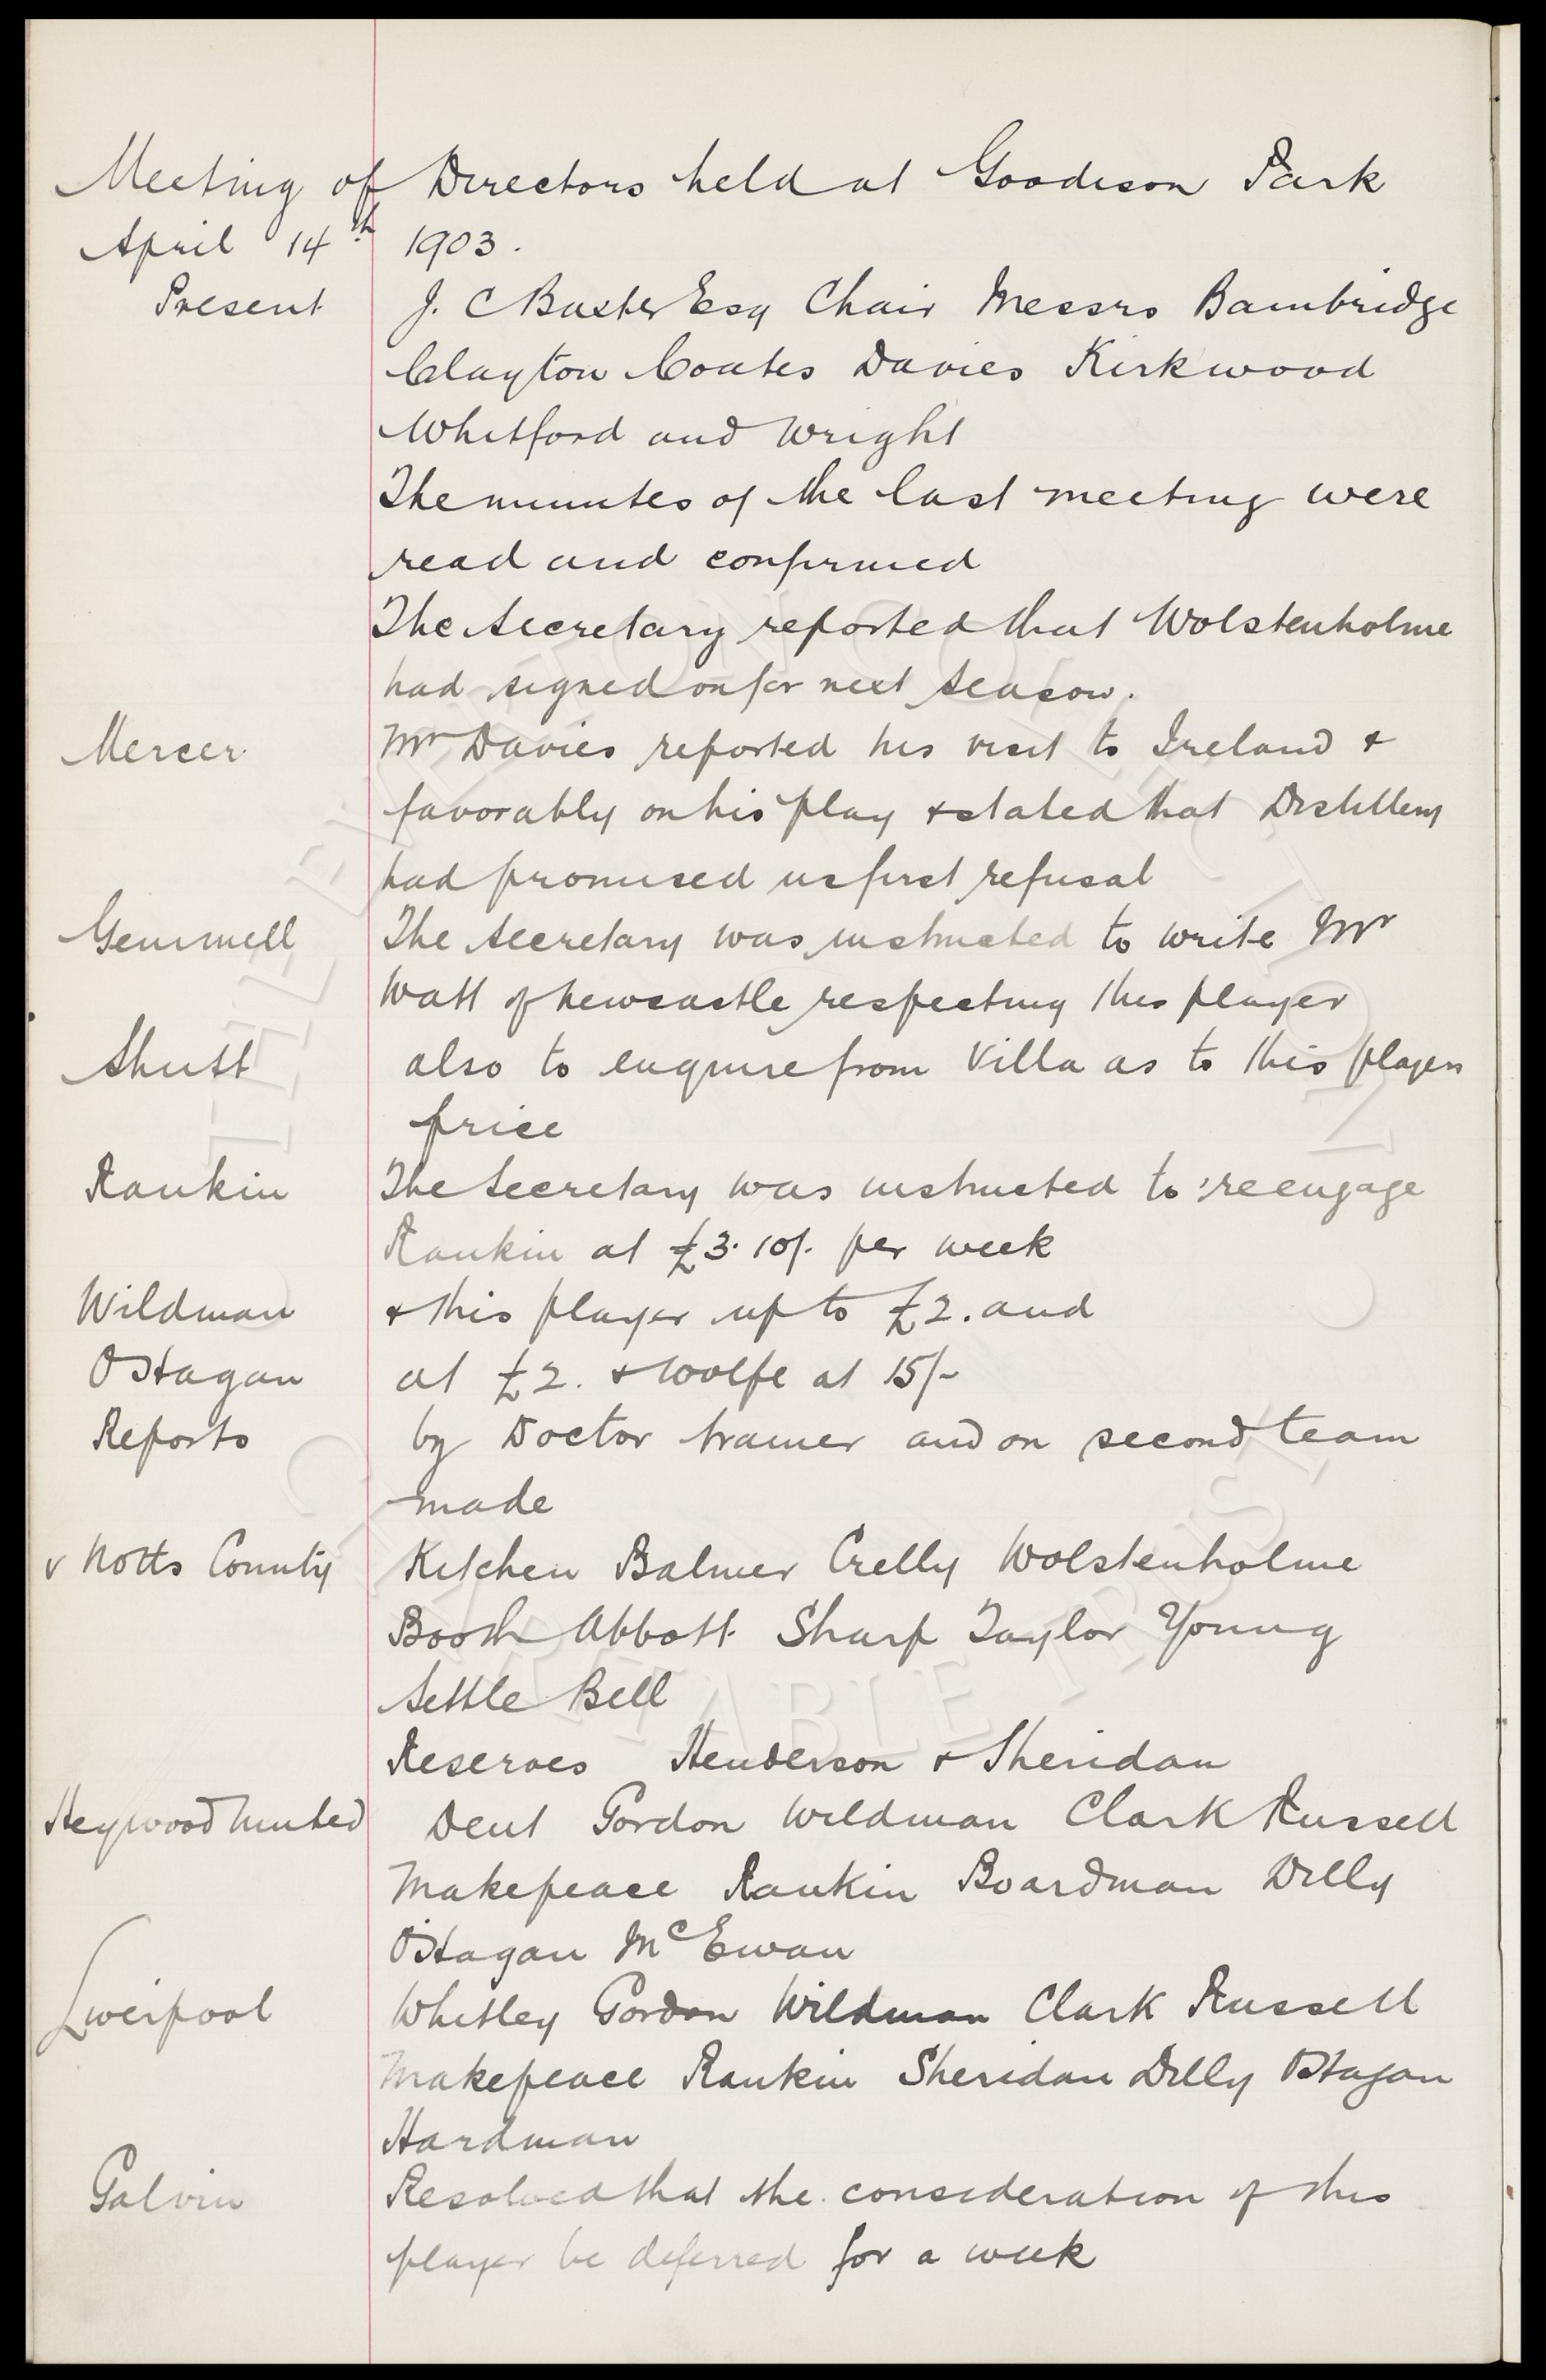 Meeting of Directors held at Goodison Park
April 14th 1903.
Present J. C Baxter Esq Chair Messrs Bambridge
Clayton Coates Davies Kirkwood
Whitford and Wright
The minutes of the last meeting were
read and confirmed
The Secretary reported that Wolstenholme
had signed on for next season.
Mercer Mr Davies reported his visit to Ireland &
favorably on his play & stated that Distillery
had promised us first refusal
Gemmell The Secretary was instructed to write Mr
Watt of Newcastle respecting this player
Shutt also to enquire from Villa as to this players
price
Rankin The Secretary was instructed to reengage
Rankin at £3.10/. per week
Wildman & this player up to £2. and
O'Hagan at £2. & Wolfe at 15/-
Reports by Doctor trainer and on second team
made
v Notts County Kitchen Balmer Crelly Wolstenholme
Booth Abbott Sharp Taylor Young
Settle Bell
Reserves Henderson & Sheridan
Heywood United Dent Gordon Wildman Clark Russell
Makepeace Rankin Boardman Dilly
O'Hagan McEwan
Liverpool Whitley Gordon Wildman Clark Russell
Makepeace Rankin Sheridan Dilly O'Hagan
Hardman
Galvin Resolved that the consideration of this
player be deferred for a week